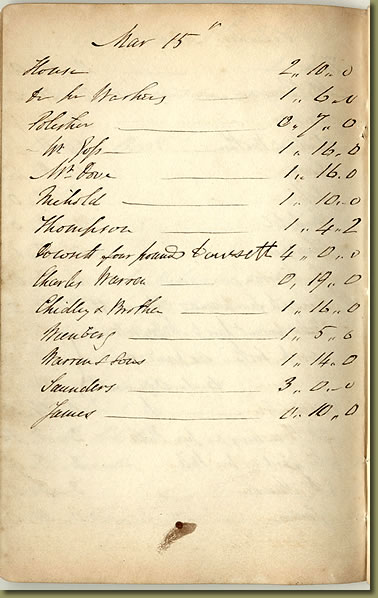 Mar 15
House 2,, 10,, 0
Do for Washers 1,, 6,, 0
0,, 7,, 0
Wm Goss 1,, 16,, 0
Mr Dove 1,, 16,, 0
Nichold 1,, 10,, 0
Thompson 1,, 4,, 2
Dowsett four pounds Dowsett 4,, 0,, 0
Charles Warren 0,, 19,, 0
Chidley & Brother 1,, 16,, 0
Newberg 1,, 5,, 0
Warren's sons 1,, 14,, 0
Saunders 3,, 0,, 0
James 0,, 10,, 0